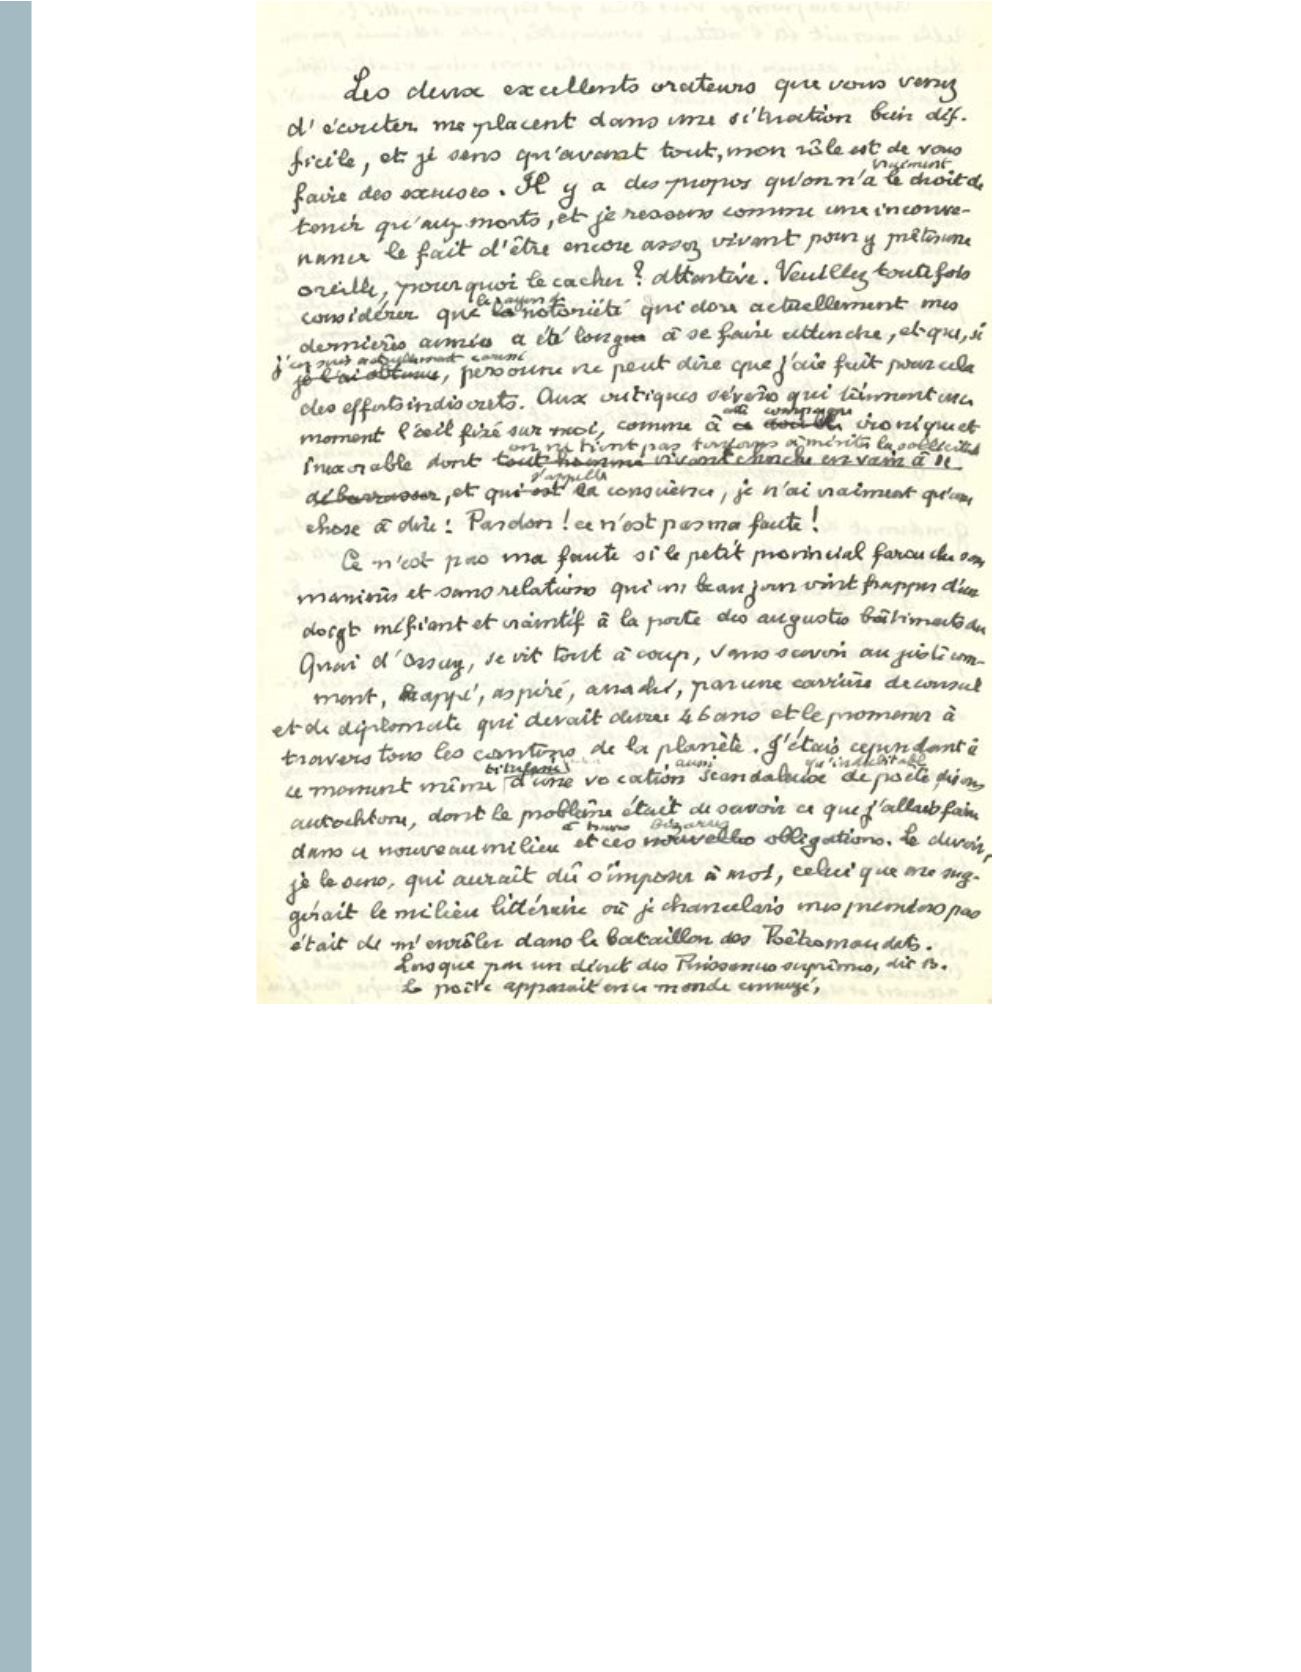 Les deux excellents orateurs que vous venez
d'écouter me placent dans une situation bien dif-
ficile, et je sens qu'avant tout, mon rôle est de vous
vraiment
faire des excuses. Il y a des propos qu'on n'a le droit de
tenir qu'aux morts, et je ressens comme une inconve-
nance le fait d'être encore assez vivant pour y prêter une
oreille, pourquoi le cacher ? attentive. Veuillez toutefois
le rayon de
considérer que la notoriété qui dore actuellement mes
dernières années a été longue à se faire attendre, et que, si
j'en suis actuellement
je l'ai obtenue, personne ne peut dire que j'aie fait pour cela
des efforts indiscrets. Aux critiques sévères qui tiennent en ce
moment l'œil fixé sur moi, comme à ironique et
on ne tient pas toujours à mériter la
inexorable dont tout homme vivant cherche en vain à se
s'appelle
débarrasser, et qui est la conscience, je n'ai vraiment qu'une
chose à dire : Pardon ! ce n'est pas ma faute !
Ce n'est pas ma faute si le petit provincial farouche sans
manières et sans relations qui un beau jour vint frapper d'un
doigt méfiant et craintif à la porte des augustes bâtiments du
Quai d'Orsay, se vit tout à coup, sans savoir au juste com-
ment, happé, aspiré, arraché, par une carrière de consul
et de diplomate qui devait durer 46 ans et le promener à
travers tous les cantons de la planète. J'étais cependant à
titulaire aussi qu'indubitable
ce moment même d'une vocation scandaleuse de poète, disons
autochtone, dont le problème était de savoir ce que j'allais faire
bizarres
dans ce nouveau milieu et ces nouvelles obligations. Le devoir,
je le sens, qui aurait dû s'imposer à moi, celui que me sug-
gérait le milieu littéraire où je chancelais mes premiers pas
était de m'enrôler dans le bataillon des Poètes maudits.
Lorsque par un décret des Puissances suprêmes, dit B.
Le poète apparait en ce monde ennuyé,